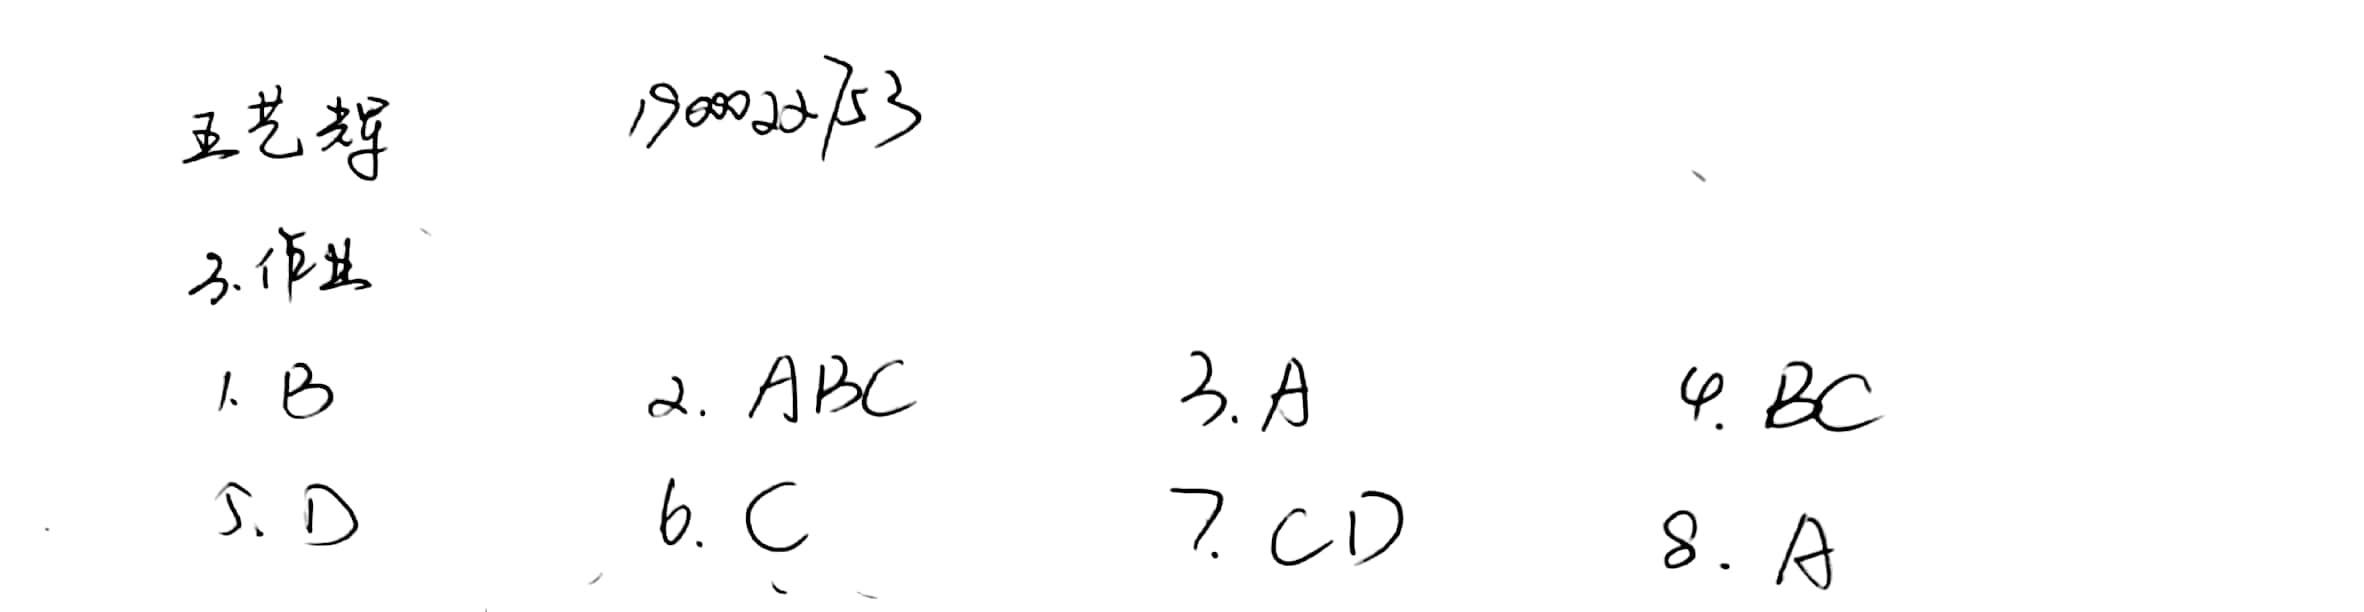 王艺辉 1900022753
3.作业
1. B 2. ABC 3. A 4. BC
5. D 6. C 7. CD 8. A